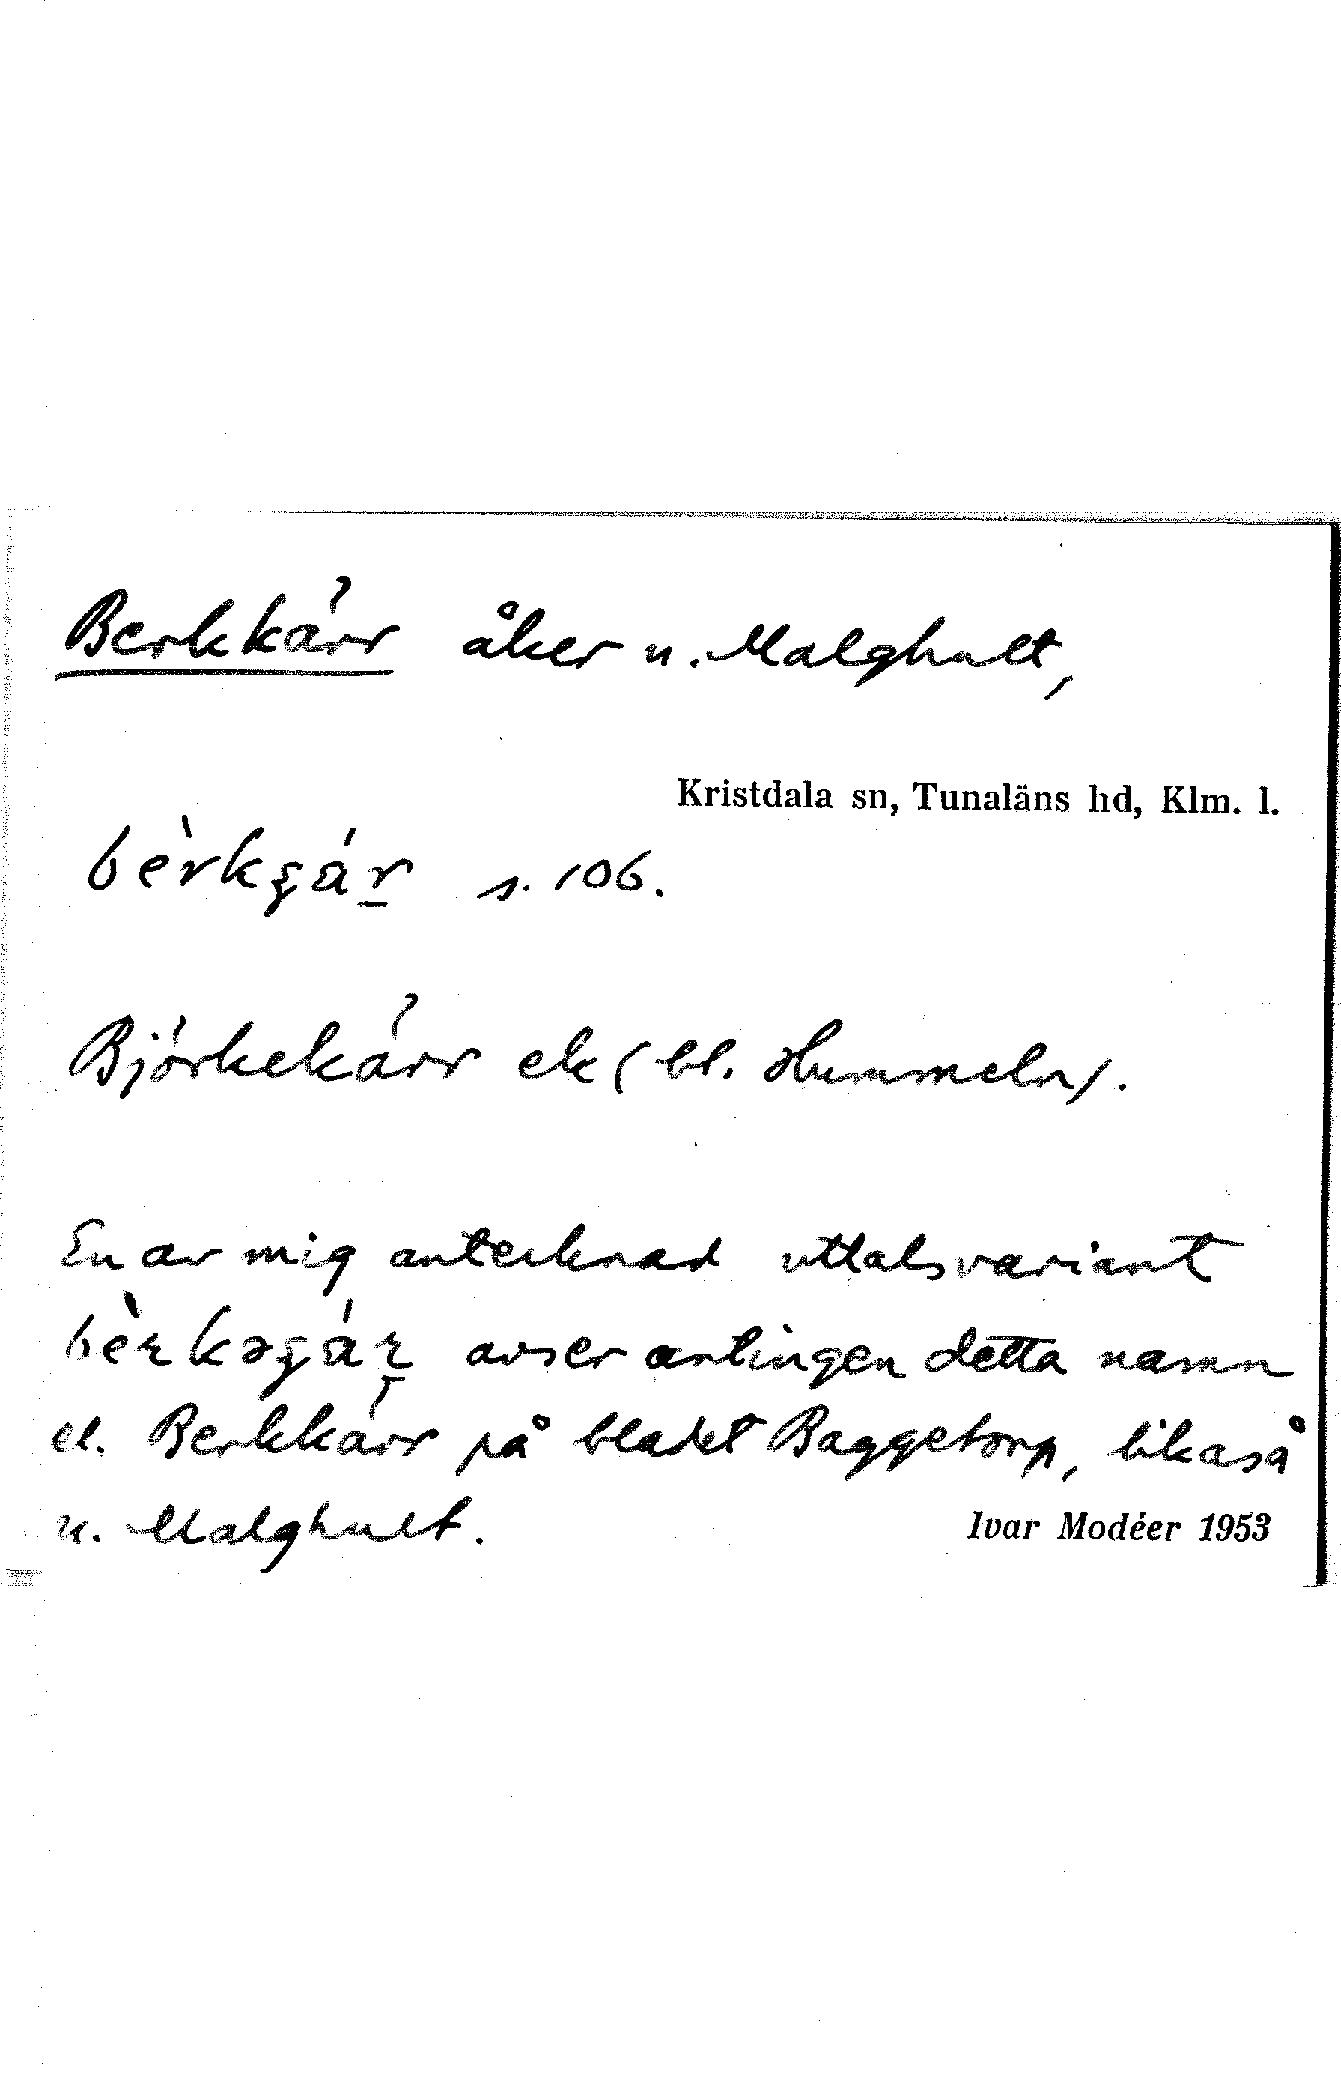 Berkkärr åker u. Malghult,
Kristdala sn, Tunaläns hd, Klm. l.
s. 106.
Björkekärr ek (bl. Hummeln).
En av mig antecknad uttalsvariant
avser antingen detta namn
el. Berkkärr på bladet Baggetorp, likaså
u. Malghult.
Ivar Modéer 1953